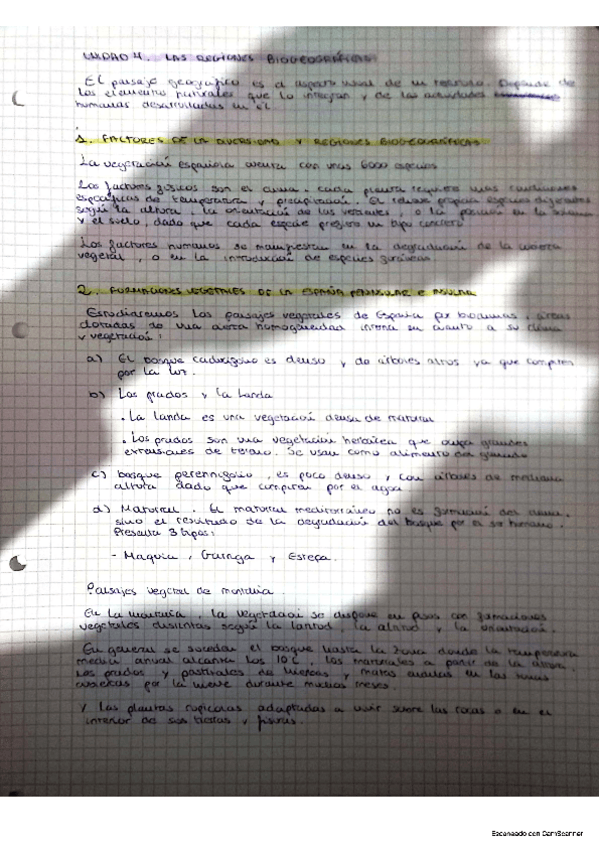 UNIDAD 4. LAS REGIONES BIOGEOGRÁFICAS
El paisaje geográfico es el aspecto visual de un territorio. Depende de
los elementos naturales que lo integran y de las actividades
humanas desarrolladas en él.
1. FACTORES DE LA DIVERSIDAD Y REGIONES BIOGEOGRÁFICAS
La vegetación española cuenta con unas 6000 especies
Los factores físicos son el clima, cada planta requiere unas condiciones
específicas de temperatura y precipitación. El relieve propicia especies diferentes
según la altura, la orientación de las vertientes, o la posición en la
y el suelo, dado que cada especie prefiere un tipo concreto
Los factores humanos se manifiestan en la degradación de la
vegetal, o en la introducción de especies foráneas
2. FORMACIONES VEGETALES DE LA ESPAÑA PENINSULAR E INSULAR
Estudiaremos los paisajes vegetales de España por biomas, áreas
dotadas de una cierta homogeneidad interna en cuanto a su clima
y vegetación:
a) El bosque caducifolio es denso y de árboles altos ya que compiten
por la luz.
b) Los prados y la landa
. La landa es una vegetación densa de matorral
. Los prados son una vegetación herbácea que ocupa grandes
extensiones de terreno. Se usan como alimento del ganado
c) bosque perennifolio, es poco denso y con árboles de mediana
altura dado que compiten por el agua
d) Matorral. El matorral mediterráneo no es formación del clima,
sino el resultado de la degradación del bosque por el ser humano.
Presenta 3 tipos:
- Maquia, Garriga y Estepa.
Paisajes vegetal de montaña.
En la montaña, la vegetación se dispone en pisos con formaciones
vegetales distintas según la latitud, la altitud y la orientación.
En general se suceden el bosque hasta la zona donde la temperatura
media anual alcanza los 10C, los matorrales a partir de la
los prados y pastizales de hierbas y matas en las zonas
cubiertas por la nieve durante muchos meses.
Y las plantas rupícolas adaptadas a vivir sobre las rocas o en el
interior de sus grietas y fisuras.
Escaneado con CamScanner